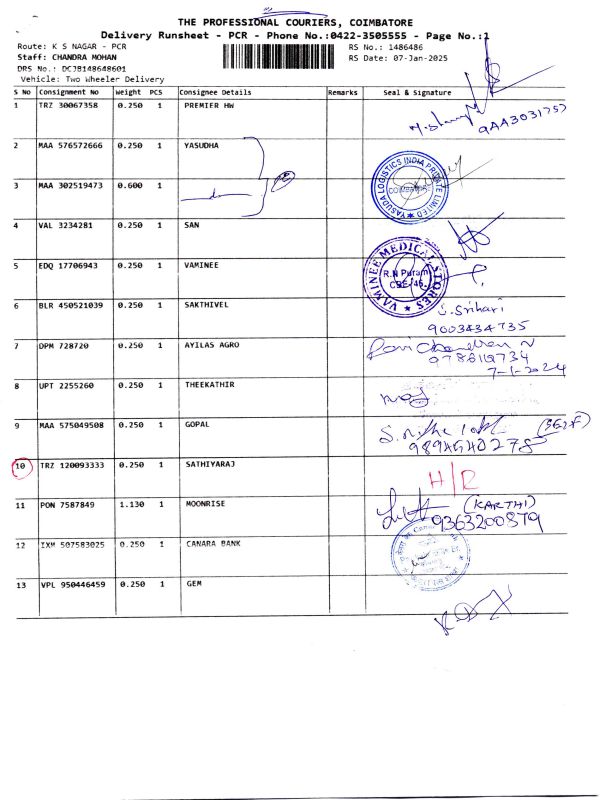 THE PROFESSIONAL COURIERS, COIMBATORE
Delivery Runsheet - PCR - Phone No.:0422-3505555 - Page No.:1
Route: K S NAGAR - PCR
RS No.: 1486486
Staff: CHANDRA MOHAN
RS Date: 07-Jan-2025
DRS No.: DCJB148648601
Vehicle: Two Wheeler Delivery
S No Consignment No Weight PCS Consignee Details Remarks Seal & Signature
1 TRZ 30067358 0.250 1 PREMIER HW
2 MAA 576572666 0.250 1 YASUDHA
YASUDA LOGISTICS INDIA PRIVATE LIMITED
COIMBATORE
3 MAA 302519473 0.600 1
4 VAL 3234281 0.250 1 SAN
5 EDQ 17706943 0.250 1 VAMINEE
VAMINEE MEDICAL STORES
R.N Puram
CBE-46
6 BLR 450521039 0.250 1 SAKTHIVEL
J. Srihari
9003434735
7 DPM 728720 0.250 1 AYILAS AGRO
Ravi Chandhran N
7-1-2024
8 UPT 2255260 0.250 1 THEEKATHIR
9 MAA 575049508 0.250 1 GOPAL
9894540278
10 TRZ 120093333 0.250 1 SATHIYARAJ
H/R
11 PON 7587849 1.130 1 MOONRISE
(KARTHI)
9363200879
12 IXM 507583025 0.250 1 CANARA BANK
13 VPL 950446459 0.250 1 GEM